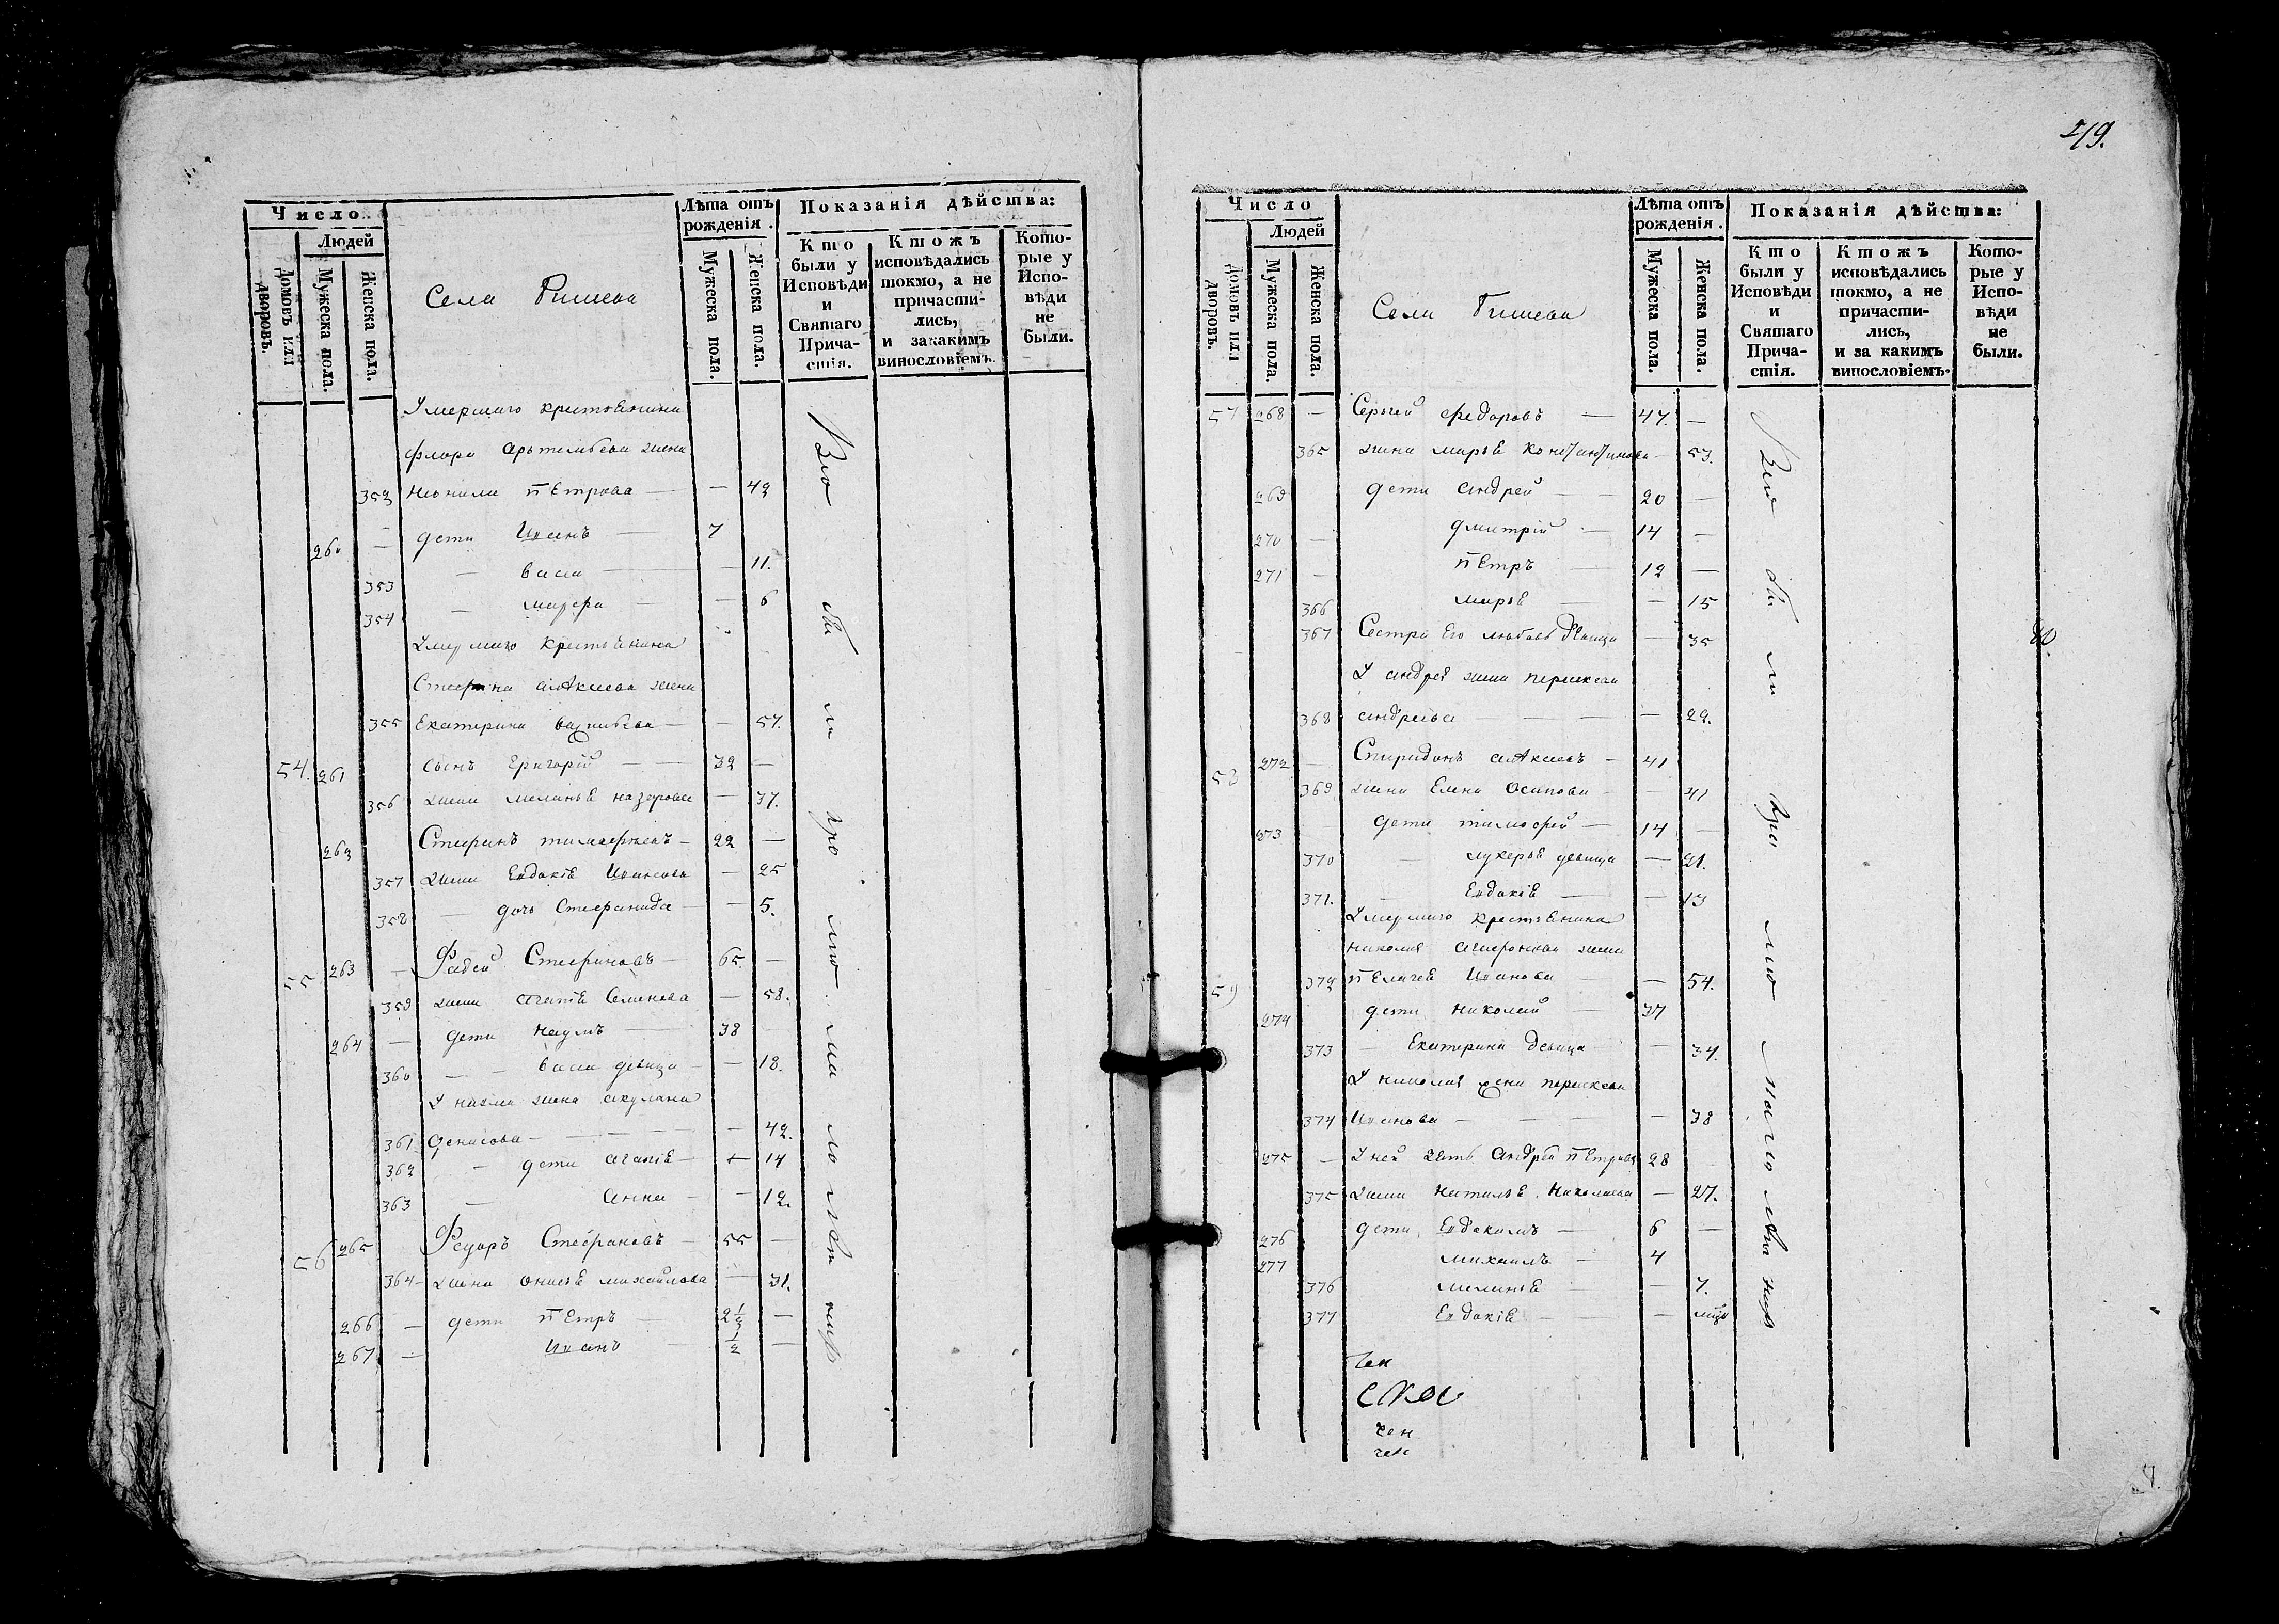 Число
Людей
Домовъ или дворовъ.
Мужеска пола.
Женска пола.
Села
Лѣта отъ рожденія.
Мужеска пола.
Женска пола.
Показанія дѣйства:
Кто были у Исповѣди и Святаго Причастія.
Ктожъ исповѣдались токмо, а не причастились, и закакимъ винословіемъ.
Которые у Исповѣди не были.
Умершаго крестьянина
Флора жена
352 Неонила Петрова — — 42
260 — дети Иванъ — 7
353 — васса — — 11.
354 — марфа — — 6
Умершаго крестьянина
Стефана жена
355 Екатерина — — 57.
54. 261 сынъ Григорій — 32 —
356 жена меланья назарова — 37.
262 Стефанъ тимофеевъ — 22 —
357 жена Евдокія Иванова — 25
358 — дочь Стефанида — — 5.
55 263 — Фадей Стефановъ — 65 —
359 жена агапія Семенова — 58.
264 — дети наумъ — 38
360 — васса девица — — 18.
У наума жена акулина
361 денисова — — 42.
362 — дети агапія — — 14
363 — анна — — 12.
56 265 Федоръ Стефановъ — 55 —
364 — жена михайлова — 31.
266 — дети Петръ — 2½ —
267 — Иванъ — ½ —
419.
Число
Людей
Домовъ или дворовъ.
Мужеска пола.
Женска пола.
Села
Лѣта отъ рожденія.
Мужеска пола.
Женска пола.
Показанія дѣйства:
Кто были у Исповѣди и Святаго Причастія.
Ктожъ исповѣдались токмо, а не причастились, и за какимъ винословіемъ.
Которые у Исповѣди не были.
57 268 — Сергей Федоровъ — 47. —
365 жена марья Константинова — 53.
269 дети андрей — 20 —
270 — дмитрій — 14 —
271 — Петръ — 12 —
366 марья — — 15
367 Сестра Его любовь девица — 35
У андрея жена параскева
368 андреева — — 22.
58 272 — Спиридонъ — 41
369 жена Елена Осипова — — 41
273 дети тимофей — 14 —
370 — лукерья девица — 21.
371. Евдокія — — 13
Умершаго крестьянина
николая жена
59 372 Пелагея Иванова — — 54.
274 дети николай — 37
373 — Екатерина девица — 34.
У николая жена параскева
374 Иванова — — 38
275 — У ней зять Андрей Петровъ 28
375 жена наталья николаева — 27.
276 дети Евдокимъ — 6 —
277 михаилъ — 4
376 меланья — — 7.
377 Евдокія — —